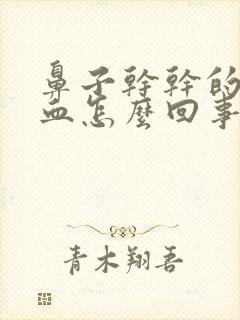 鼻子幹幹的
血怎麼回事
青木翔吾